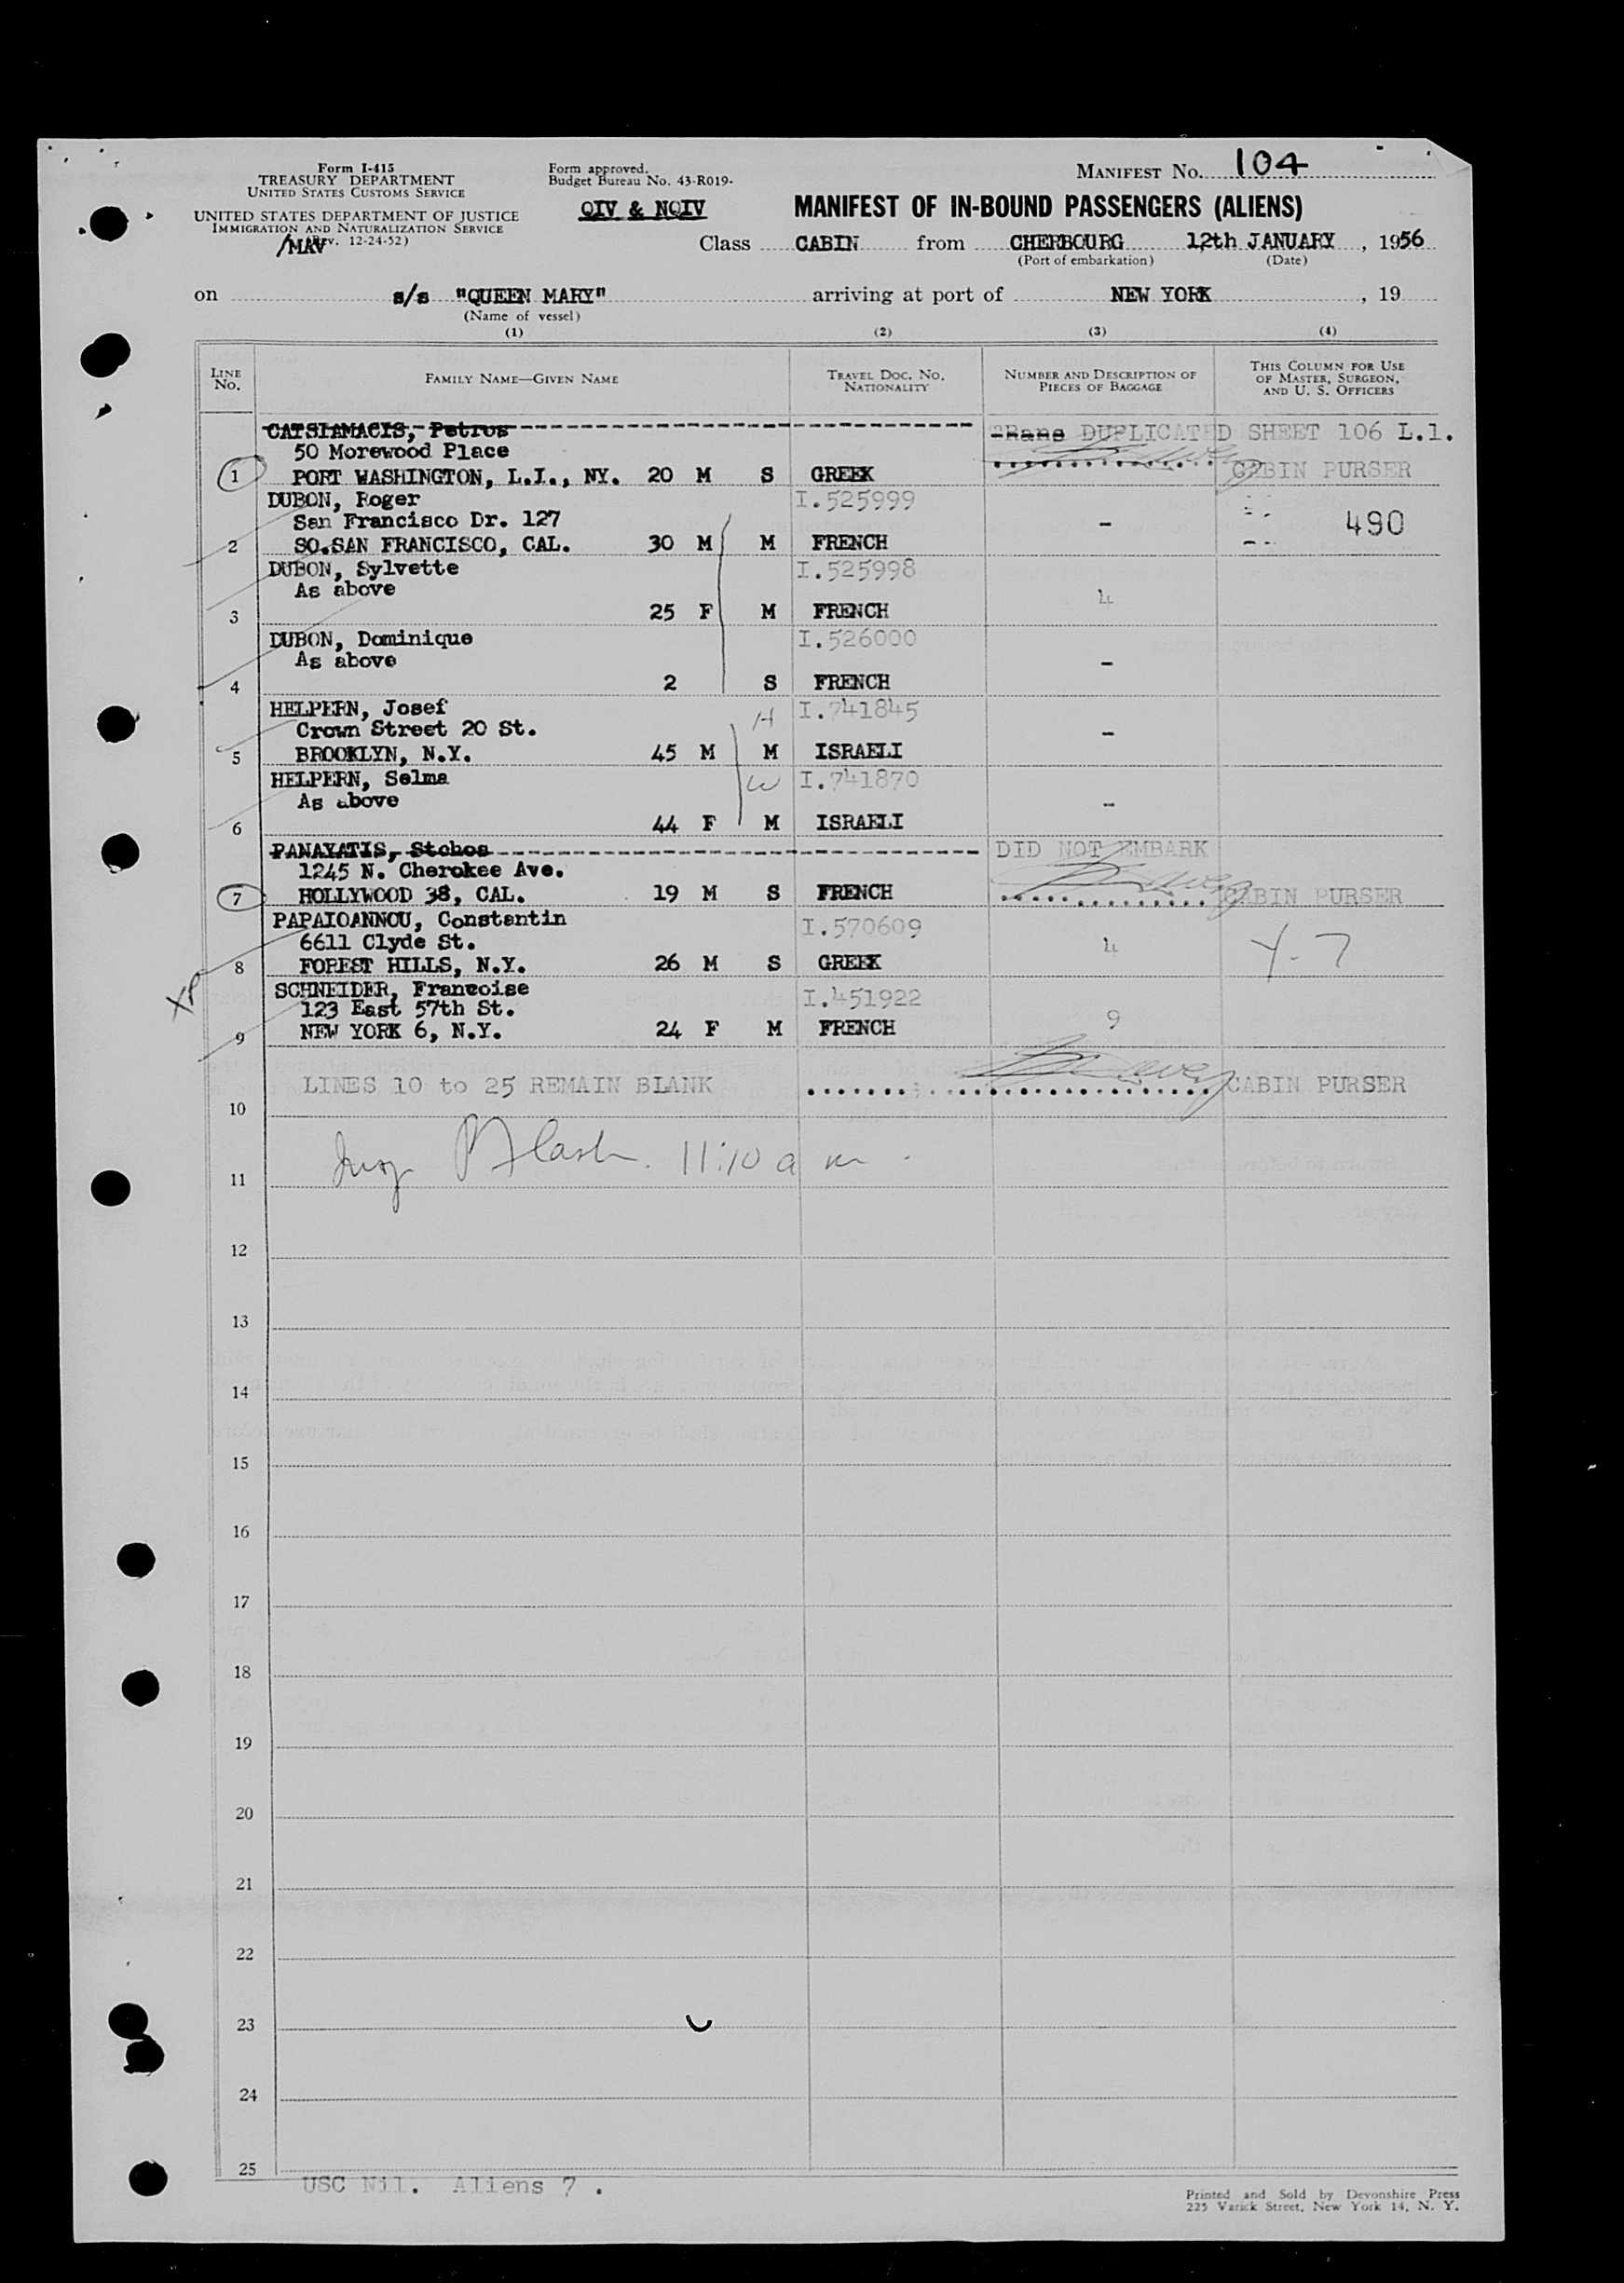 Form I-415
TREASURY DEPARTMENT
UNITED STATES CUSTOMS SERVICE
UNITED STATES DEPARTMENT OF JUSTICE
IMMIGRATION AND NATURALIZATION SERVICE
/MAV
12-24-52)
Form approved.
Budget Bureau No. 43-R019-
QIV & NQIV
MANIFEST NO. 104
MANIFEST OF IN-BOUND PASSENGERS (ALIENS)
Class CABIN from CHERBOURG 12th JANUARY, 1956
(Port of embarkation) (Date)
on s/s "QUEEN MARY" arriving at port of NEW YORK, 19
(Name of vessel)
(1) (2) (3) (4)
LINE NO. FAMILY NAME—GIVEN NAME TRAVEL DOC. NO. NATIONALITY NUMBER AND DESCRIPTION OF PIECES OF BAGGAGE THIS COLUMN FOR USE OF MASTER, SURGEON, AND U. S. OFFICERS
CATSIAMACIS, Petros DUPLICATED SHEET 106 L.1.
50 Morewood Place
1 PORT WASHINGTON, L.I., NY. 20 M S GREEK CABIN PURSER
DUBON, Roger I.525999
San Francisco Dr. 127 - 490
2 SO.SAN FRANCISCO, CAL. 30 M M FRENCH
DUBON, Sylvette I.525998
As above 4
3 25 F M FRENCH
DUBON, Dominique I.526000
As above -
4 2 S FRENCH
HELPERN, Josef H I.741845
Crown Street 20 St. -
5 BROOKLYN, N.Y. 45 M M ISRAELI
HELPERN, Selma W I.741870
As above -
6 44 F M ISRAELI
PANAYATIS, Stohos DID NOT EMBARK
1245 N. Cherokee Ave.
7 HOLLYWOOD 38, CAL. 19 M S FRENCH CABIN PURSER
PAPAIOANNOU, Constantin I.570609
6611 Clyde St. 4 Y-7
8 FOREST HILLS, N.Y. 26 M S GREEK
XP
SCHNEIDER, Francoise I.451922
123 East 57th St. 9
9 NEW YORK 6, N.Y. 24 F M FRENCH
LINES 10 to 25 REMAIN BLANK CABIN PURSER
10
11:10 a m
11
12
13
14
15
16
17
18
19
20
21
22
23
24
25
USC Nil. Aliens 7.
Printed and Sold by Devonshire Press
225 Varick Street, New York 14, N. Y.